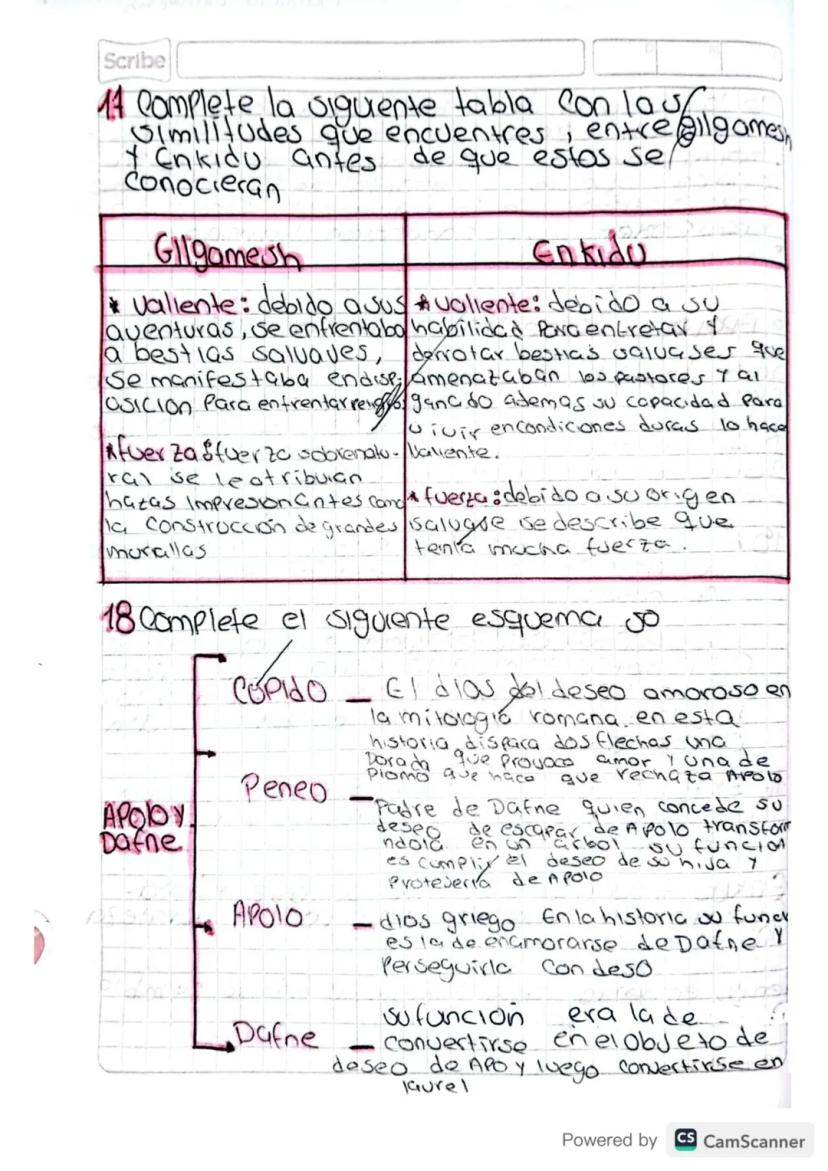 Scribe
11 Complete la siguiente tabla con las
similitudes que encuentres, entre Gilgamesh
y Enkidu antes de que estos se
conocieran
Gilgamesh
Enkidu
* valiente: debido a sus
aventuras, se enfrentaba
a bestias salvaves,
se manifestaba endisp-
osición para enfrentar
*fuerza: fuerza sobrenatu-
ral se leatribuian
hazas impresionantes como
la construcción de grandes
murallas
*valiente: debido a su
habilidad para entretar y
derrotar bestias salvases que
amenazaban los pastores y al
ganado ademas su capacidad para
vivir encondiciones duras lo hace
valiente.
* fuerza: debido a su origen
salvage se describe que
tenía mucha fuerza.
18 Complete el siguiente esquema
Apolo y
Dafne
Cúpido — El dios del deseo amoroso en
la mitología romana. en esta
historia dispara dos flechas una
Dorada que provoca amor y una de
plomo que hace que rechaza Apolo
Peneo — Padre de Dafne quien concede su
deseo de escapar de Apolo transform
ndola en un arbol su funcion
es cumplir el deseo de su hija y
protejerla de Apolo
Apolo — dios griego En la historia su funci
es la de enamorarse de Dafne y
perseguirla con deso
Dafne — su función era la de
convertirse en el objeto de
deseo de Apo y luego convertirse en
laurel
Powered by CS CamScanner